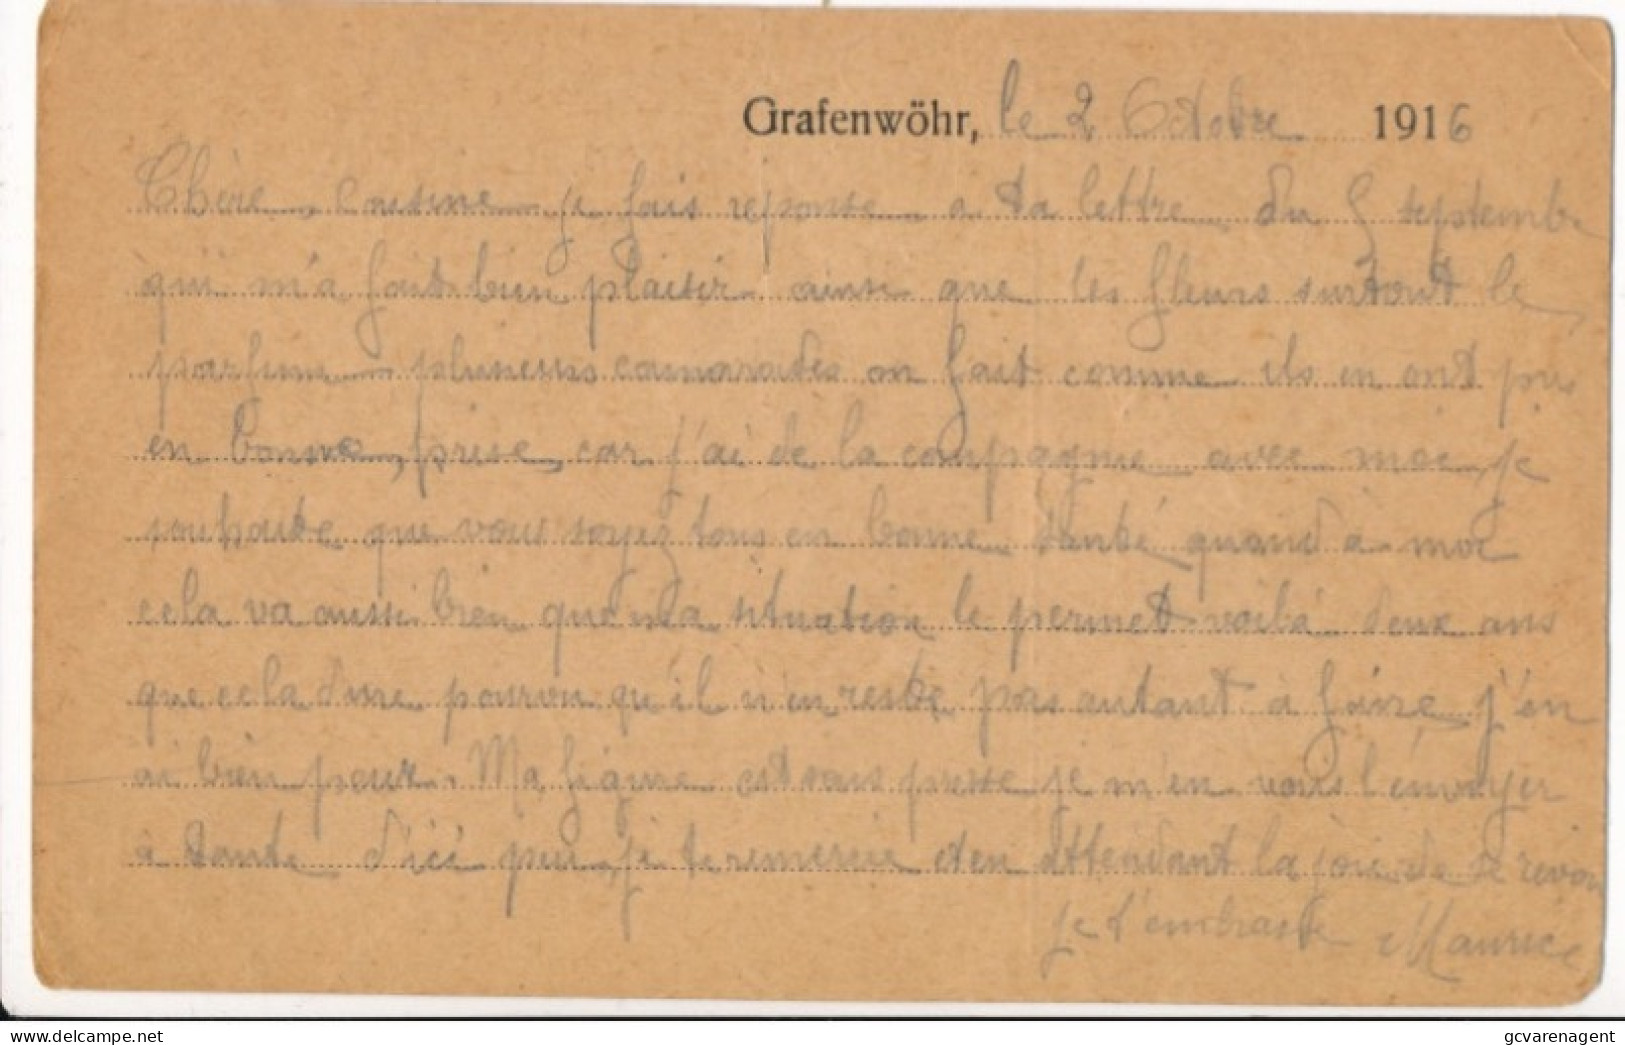 Grafenwöhr, le 2 Octobre 1916
Chère Cousine je fais réponse a ta lettre du 5 septemb
qui m'a fait bien plaisir ainsi que les fleurs surtout le
parfum plusieurs camarades on fait comme ils en ont pris
en bonne prise, car j'ai de la compagnie avec moi, je
souhaite que vous soyez tous en bonne santé quand à moi
cela va aussi bien que ma situation le permet voilà deux ans
que cela dure pourvu qu'il n'en reste pas autant à faire j'en
ai bien peur. Ma figure est sous presse je m'en vais l'envoyer
à tante d'ici peu, je te remercie et en attendant la joie de te revoir
je t'embrasse Maurice
PICCLICK DELCAMPE.NET
gcvarenagent